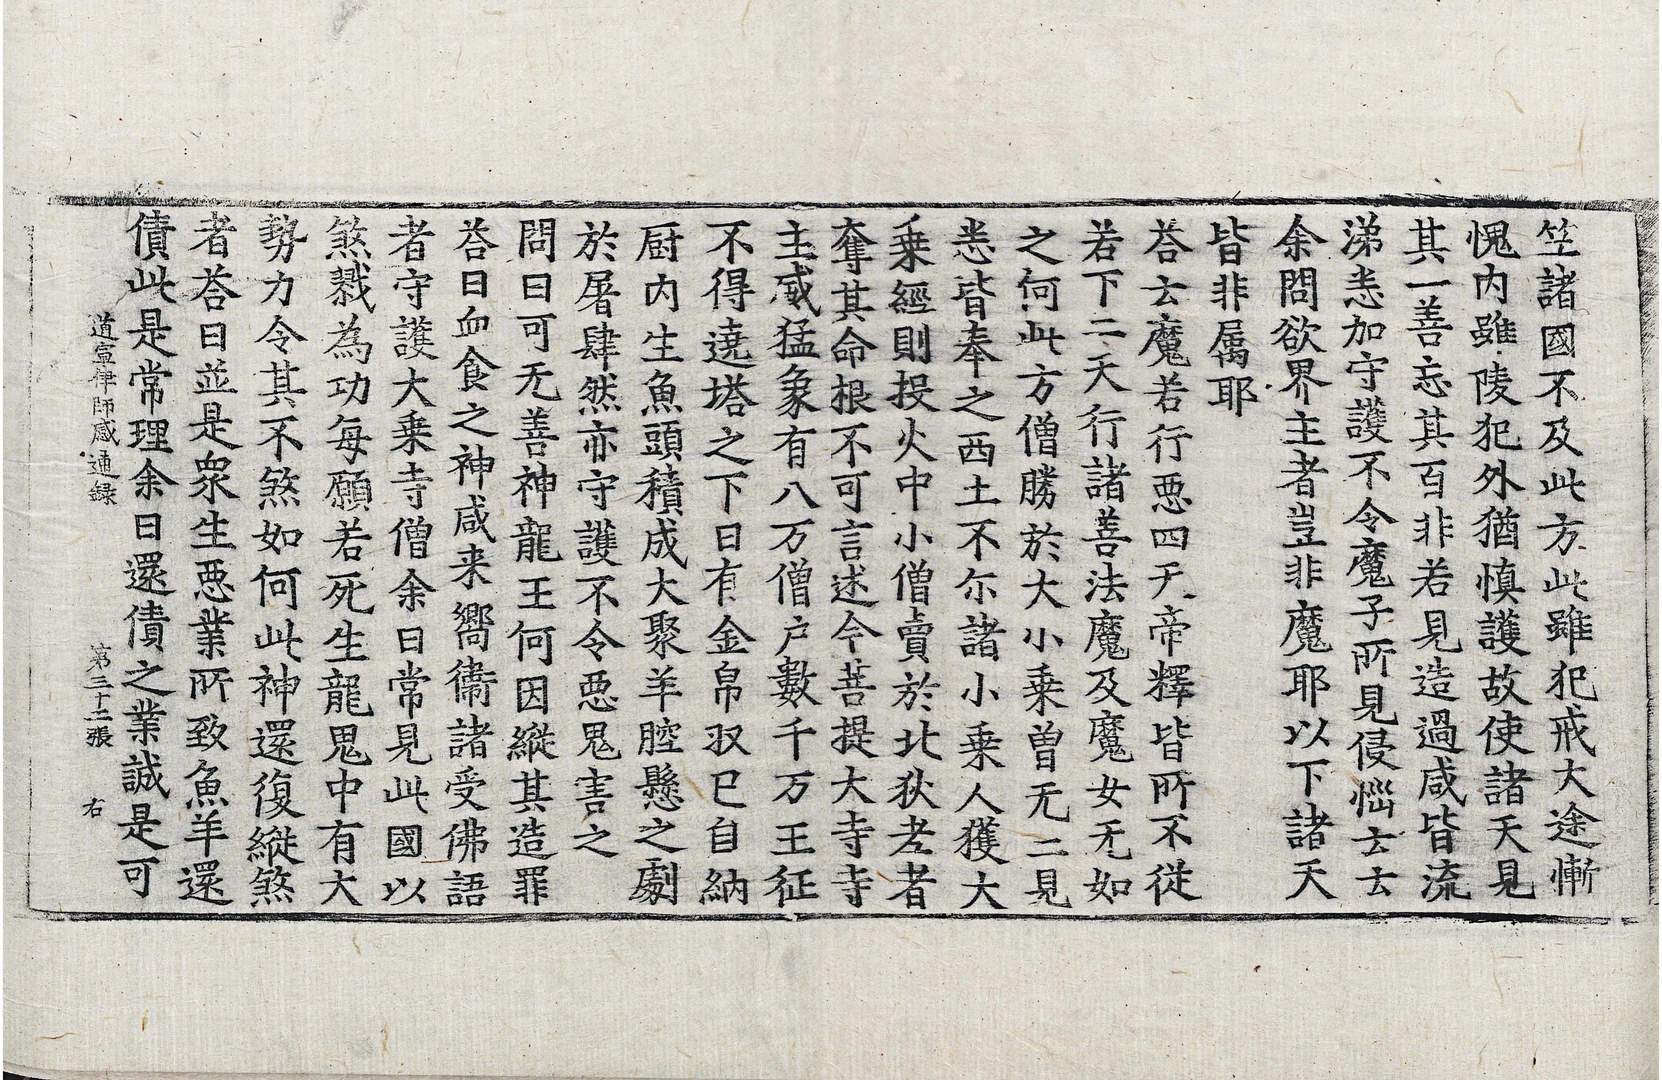 笁諸國不及此方此雖犯戒大途慚
愧内雖陵犯外猶慎護故使諸天見
其一善忘其百非若見造過咸皆流
涕悉加守護不令魔子所見侵惱云云
余問欲界主者豈非魔耶以下諸天
皆非属耶
荅云魔若行惡四天帝釋皆所不從
若下二天行諸善法魔及魔女无如
之何此方僧勝於大小乗曽无二見
悉皆奉之西土不尓諸小乗人獲大
乗經則投火中小僧賣於北狄老者
奪其命根不可言述今菩提大寺寺
主威猛象有八万僧户數千万王征
不得遶塔之下日有金帛収已自納
厨内生魚頭積成大聚羊腔懸之劇
於屠肆然亦守護不令惡鬼害之
問曰可无善神龍王何因縱其造罪
荅曰血食之神咸来嚮衞諸受佛語
者守護大乗寺僧余曰常見此國以
煞戮為功每願若死生龍鬼中有大
勢力令其不煞如何此神還復縱煞
者荅曰並是衆生惡業所致魚羊還
債此是常理余曰還債之業誠是可
道宣律師感通録 第三十二張 右